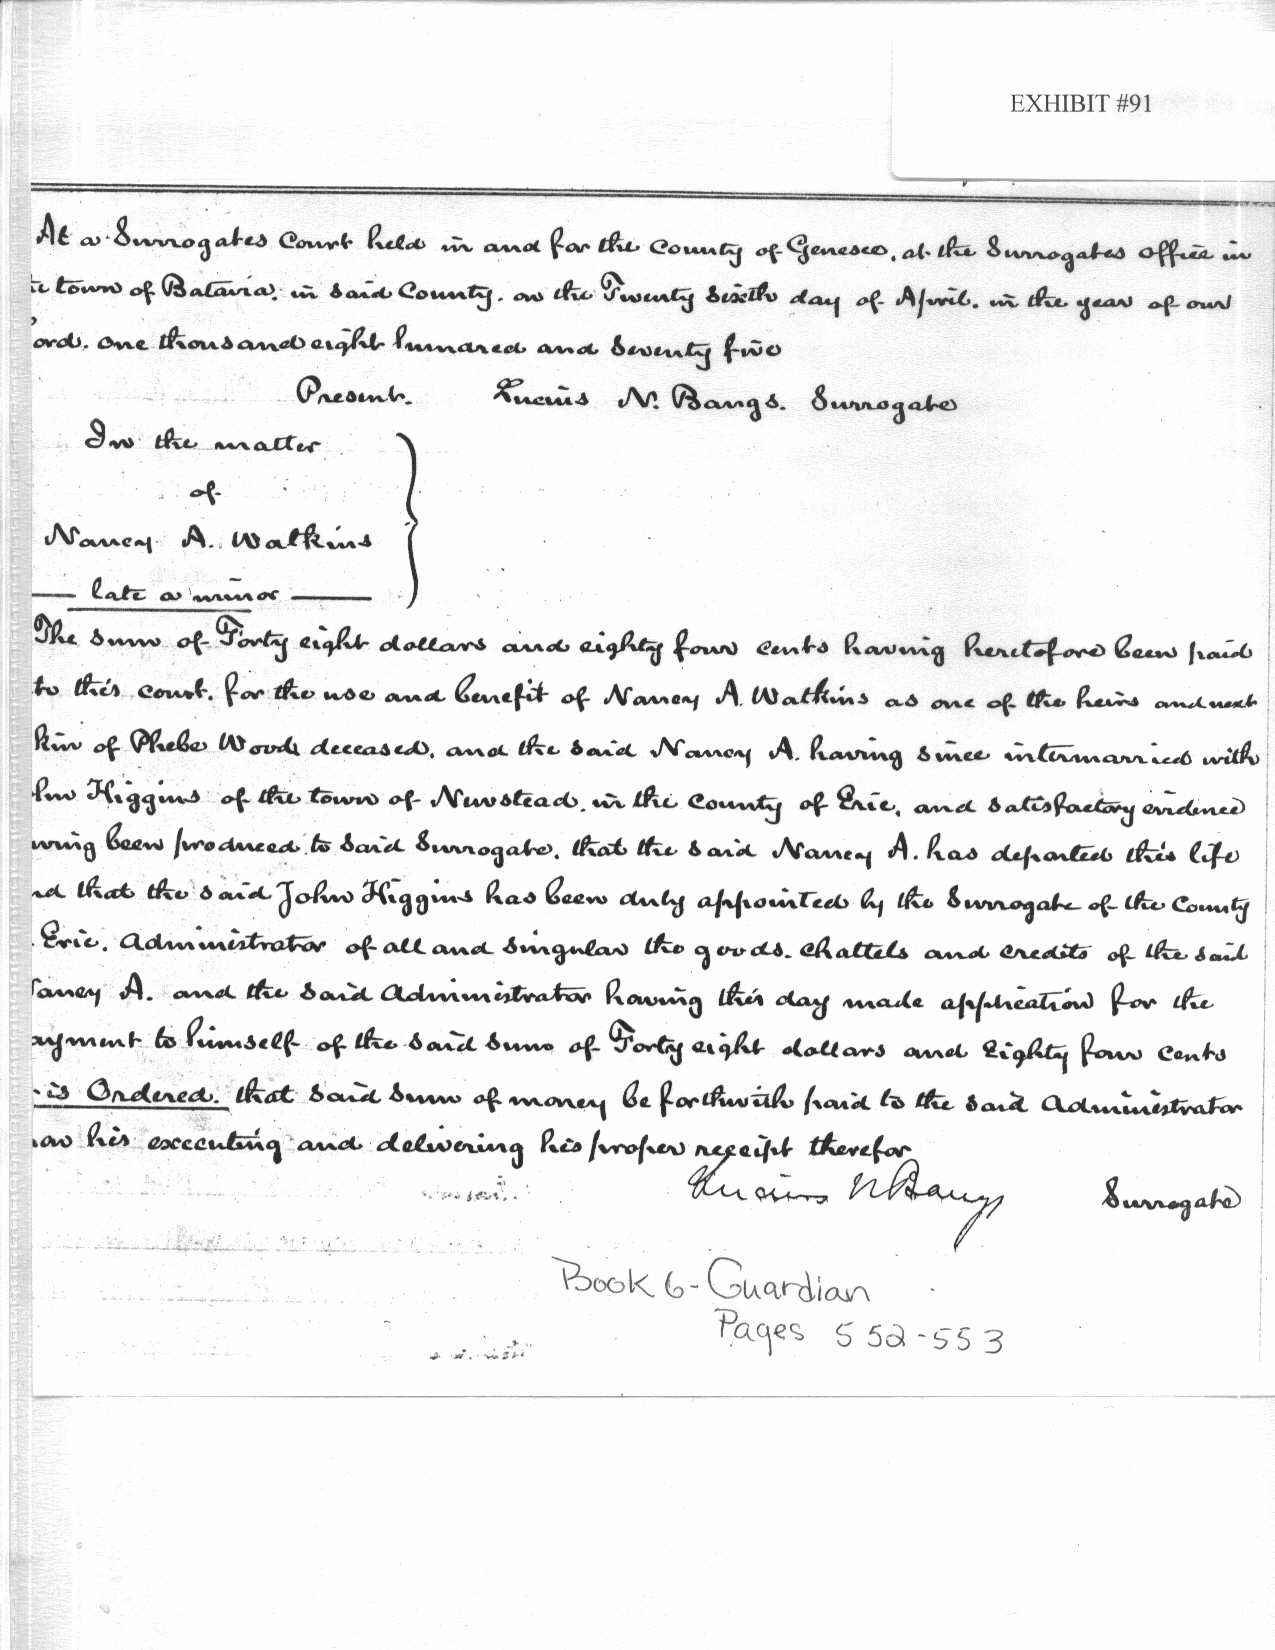 EXHIBIT #91
At a Surrogates Court held in and for the County of Genesee, at the Surrogates office in
town of Batavia, in said County, on the Twenty Sixth day of April, in the year of our
ord, one thousand eight hundred and Seventy five
Present. Lucius N. Bangs. Surrogate
In the matter
of
Nancy A. Watkins
— late a minor —
The Sum of Forty eight dollars and eighty four cents having heretofore been paid
to this court, for the use and benefit of Nancy A. Watkins as one of the heirs and next
kin of Phebe Woods deceased, and the said Nancy A. having since intermarried with
hn Higgins of the town of Newstead, in the County of Erie, and satisfactory evidence
aving been produced to said Surrogate, that the said Nancy A. has departed this life
nd that the said John Higgins has been duly appointed by the Surrogate of the County
Erie, Administrator of all and singular the goods, chattels and credits of the said
ancy A. and the said Administrator having this day made application for the
ayment to himself of the said Sum of Forty eight dollars and Eighty four Cents
is Ordered. that said Sum of money be forthwith paid to the said Administrator
on his executing and delivering his proper receipt therefor
Lucius N Bangs Surrogate
Book 6 - Guardian
Pages 552-553